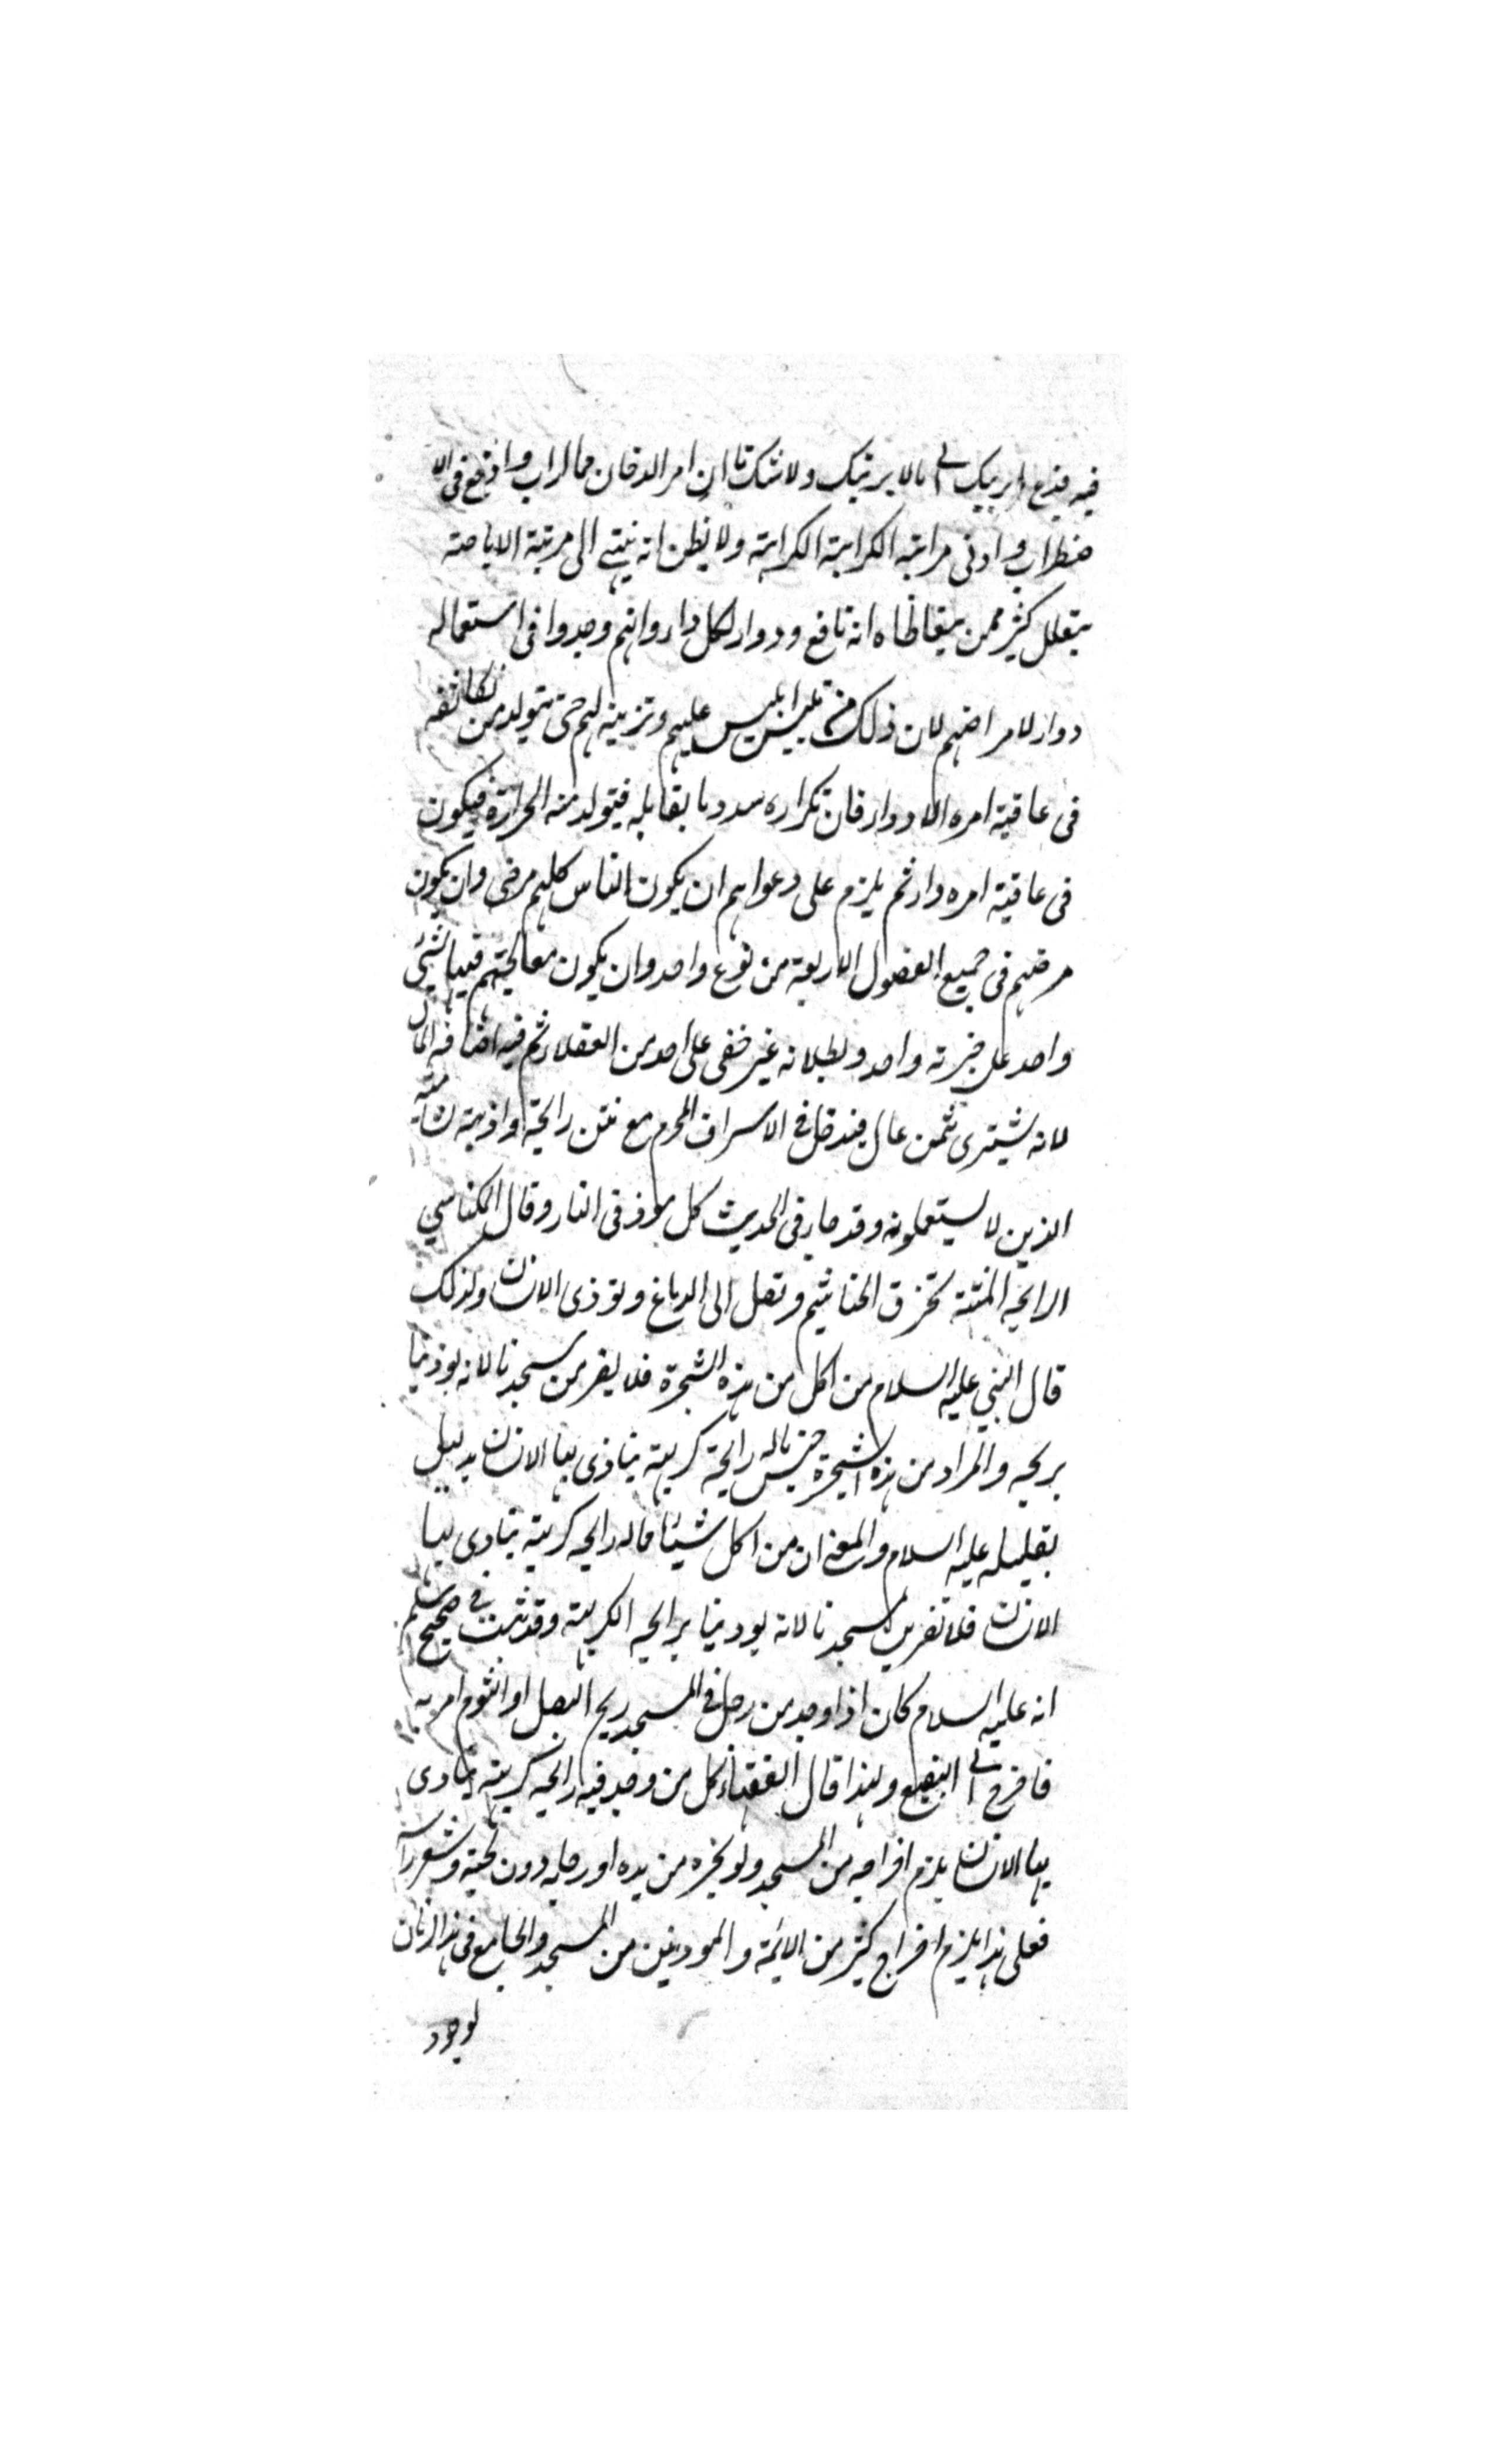 فيه فيدع ما يريبك الى ما لا يريبك ولا شك ان امر الدخان مما اراب واوقع فى الا
ضطراب وادنى مراتبه الكراهية الكراهة ولا يظن انه ينتهى الى مرتبة الاباحة
يتعلل كثير ممن يتعاطاه انه نافع ودواء لكل داء وانهم وجدوا فى استعماله
دواء لامراضهم لان ذلك من تلبيس ابليس عليهم وتزيينه لهم حتى يتولد من تكاثفه
فى عاقبة امره الادواء فان تكراره يسود ما يقابله فيتولد منه الحرارة فيكون
فى عاقبة امره داء ثم يلزم على دعواهم ان يكون الناس كلهم مرضى وان يكون
مرضهم فى جميع الفصول الاربعة من نوع واحد وان يكون معالجتهم فيها لشئ
واحد على وتيرة واحد وبطلانه غير خفى على احد من العقلاء ثم فيه اضافة المال
لانه يشترى بثمن عال فيدخل فى الاسراف المحرم مع نتن رايحة واذية شامته
الذين لا يستعملونه وقد جاء فى الحديث كل موذ فى النار وقال الكناسي
الرايحه المنتنة تخرق الخناشيم وتصل الى الدماغ وتوذى الانسان ولذلك
قال النبي عليه السلام من اكل من هذه الشجرة فلا يقربن مسجدنا لانه يوذينا
بريحه والمراد من هذه الشجرة جنس ما له رايحة كريهة يتاذى بها الانسان بدليل
بتعليله عليه السلام والمعنى ان من اكل شيئا ماله رايحه كريهة يتاذى بها
الانسان فلا تقربن مسجدنا لانه يوذينا برايحه الكريهة وقد ثبت فى صحيح مسلم
انه عليه السلام كان اذا وجد من رجل فى المسجد ريح البصل او الثوم امر به
فاخرج الى البقيع ولهذا قال الفقهاء كل من وجد فيه رايحه كريهة يتاذى
بها الانسان يلزم اخراجه من المسجد ولو بجره من يده او رجله دون لحيته وشعر راسه
فعلى هذا يلزم اخراج كثير من الايمة والموذنين من المسجد والجامع فى هذا الزمان
لوجود